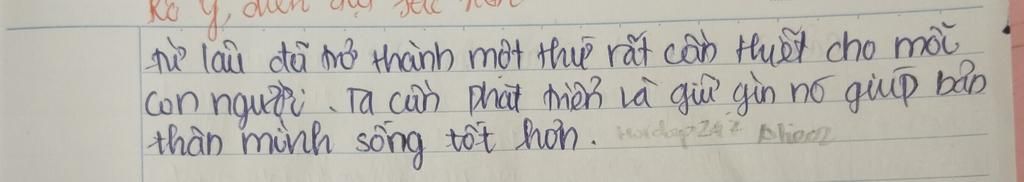 Rõ ý, diễn đạt
từ lâu đã trở thành một thứ rất cần thiết cho mỗi
con người. Ta cần phát triển và giữ gìn nó giúp bản
thân mình sống tốt hơn.